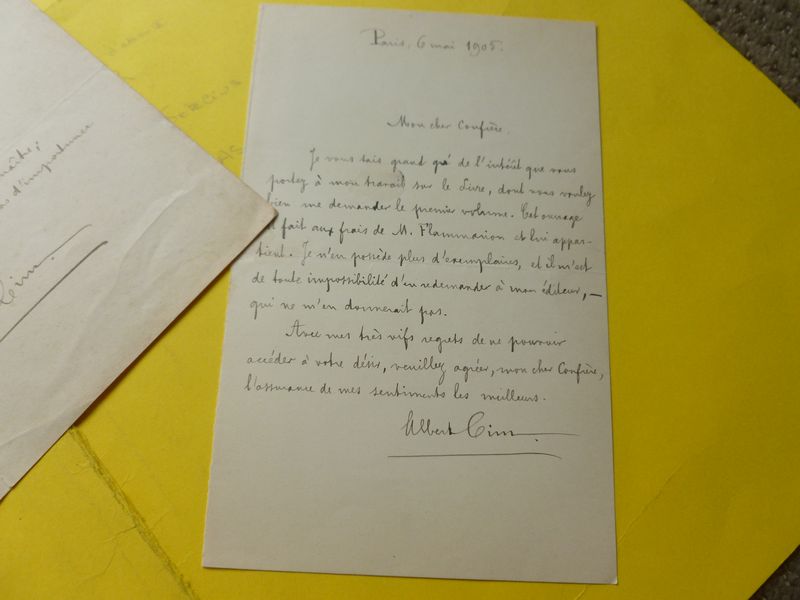 Paris, 6 mai 1905.
Mon cher Confrère,
Je vous sais grand gré de l'intérêt que vous
portez à mon travail sur le Livre, dont vous voulez
bien me demander le premier volume. Cet ouvrage
est fait aux frais de M. Flammarion et lui appar-
tient. Je n'en possède plus d'exemplaires, et il m'est
de toute impossibilité d'en redemander à mon éditeur, —
qui ne m'en donnerait pas.
Avec mes très vifs regrets de ne pouvoir
accéder à votre désir, veuillez agréer, mon cher Confrère,
l'assurance de mes sentiments les meilleurs.
Albert Cim.
naître;
d'importance
Cim.